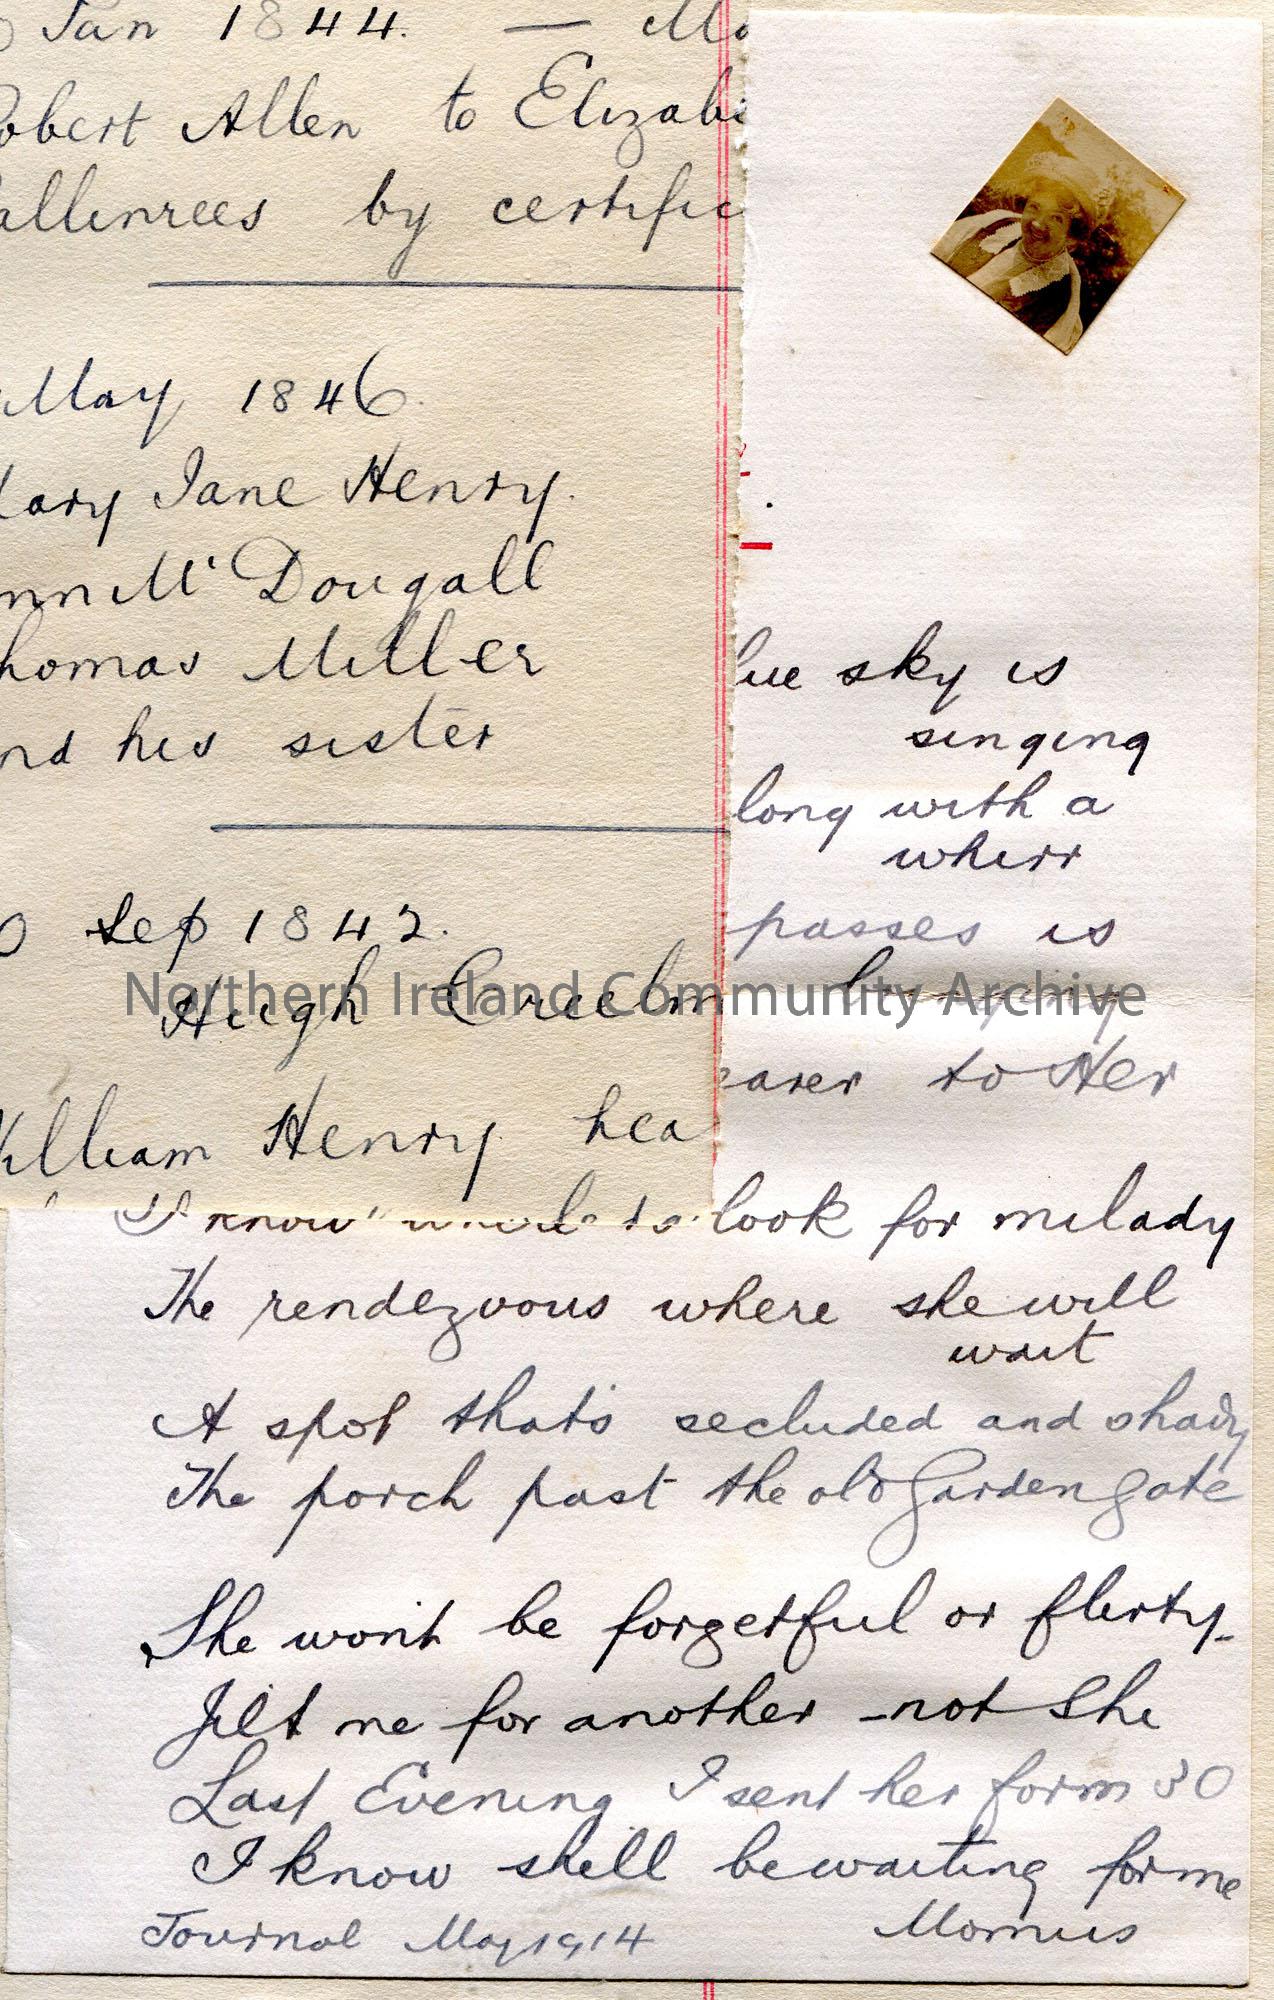 Jan 1844. —
obert Allen to Elizabe
allinrees by certific
May 1846.
ary Jane Henry.
nn Mc Dougall
homas Miller
nd his sister
0 Sep 1842.
Hugh Creelm
illiam Henry hea
lue sky is
singing
long with a
whirr
passes is
bringing
earer to Her
I know where to look for milady
The rendezvous where she will
wait
A spot that's secluded and shady
The porch past the old Garden gate
She won't be forgetful or flirty-
Jilt me for another - not She
Last Evening I sent her form 30
I know shell be waiting for me
Journal May 1914 Momus
Northern Ireland Community Archive